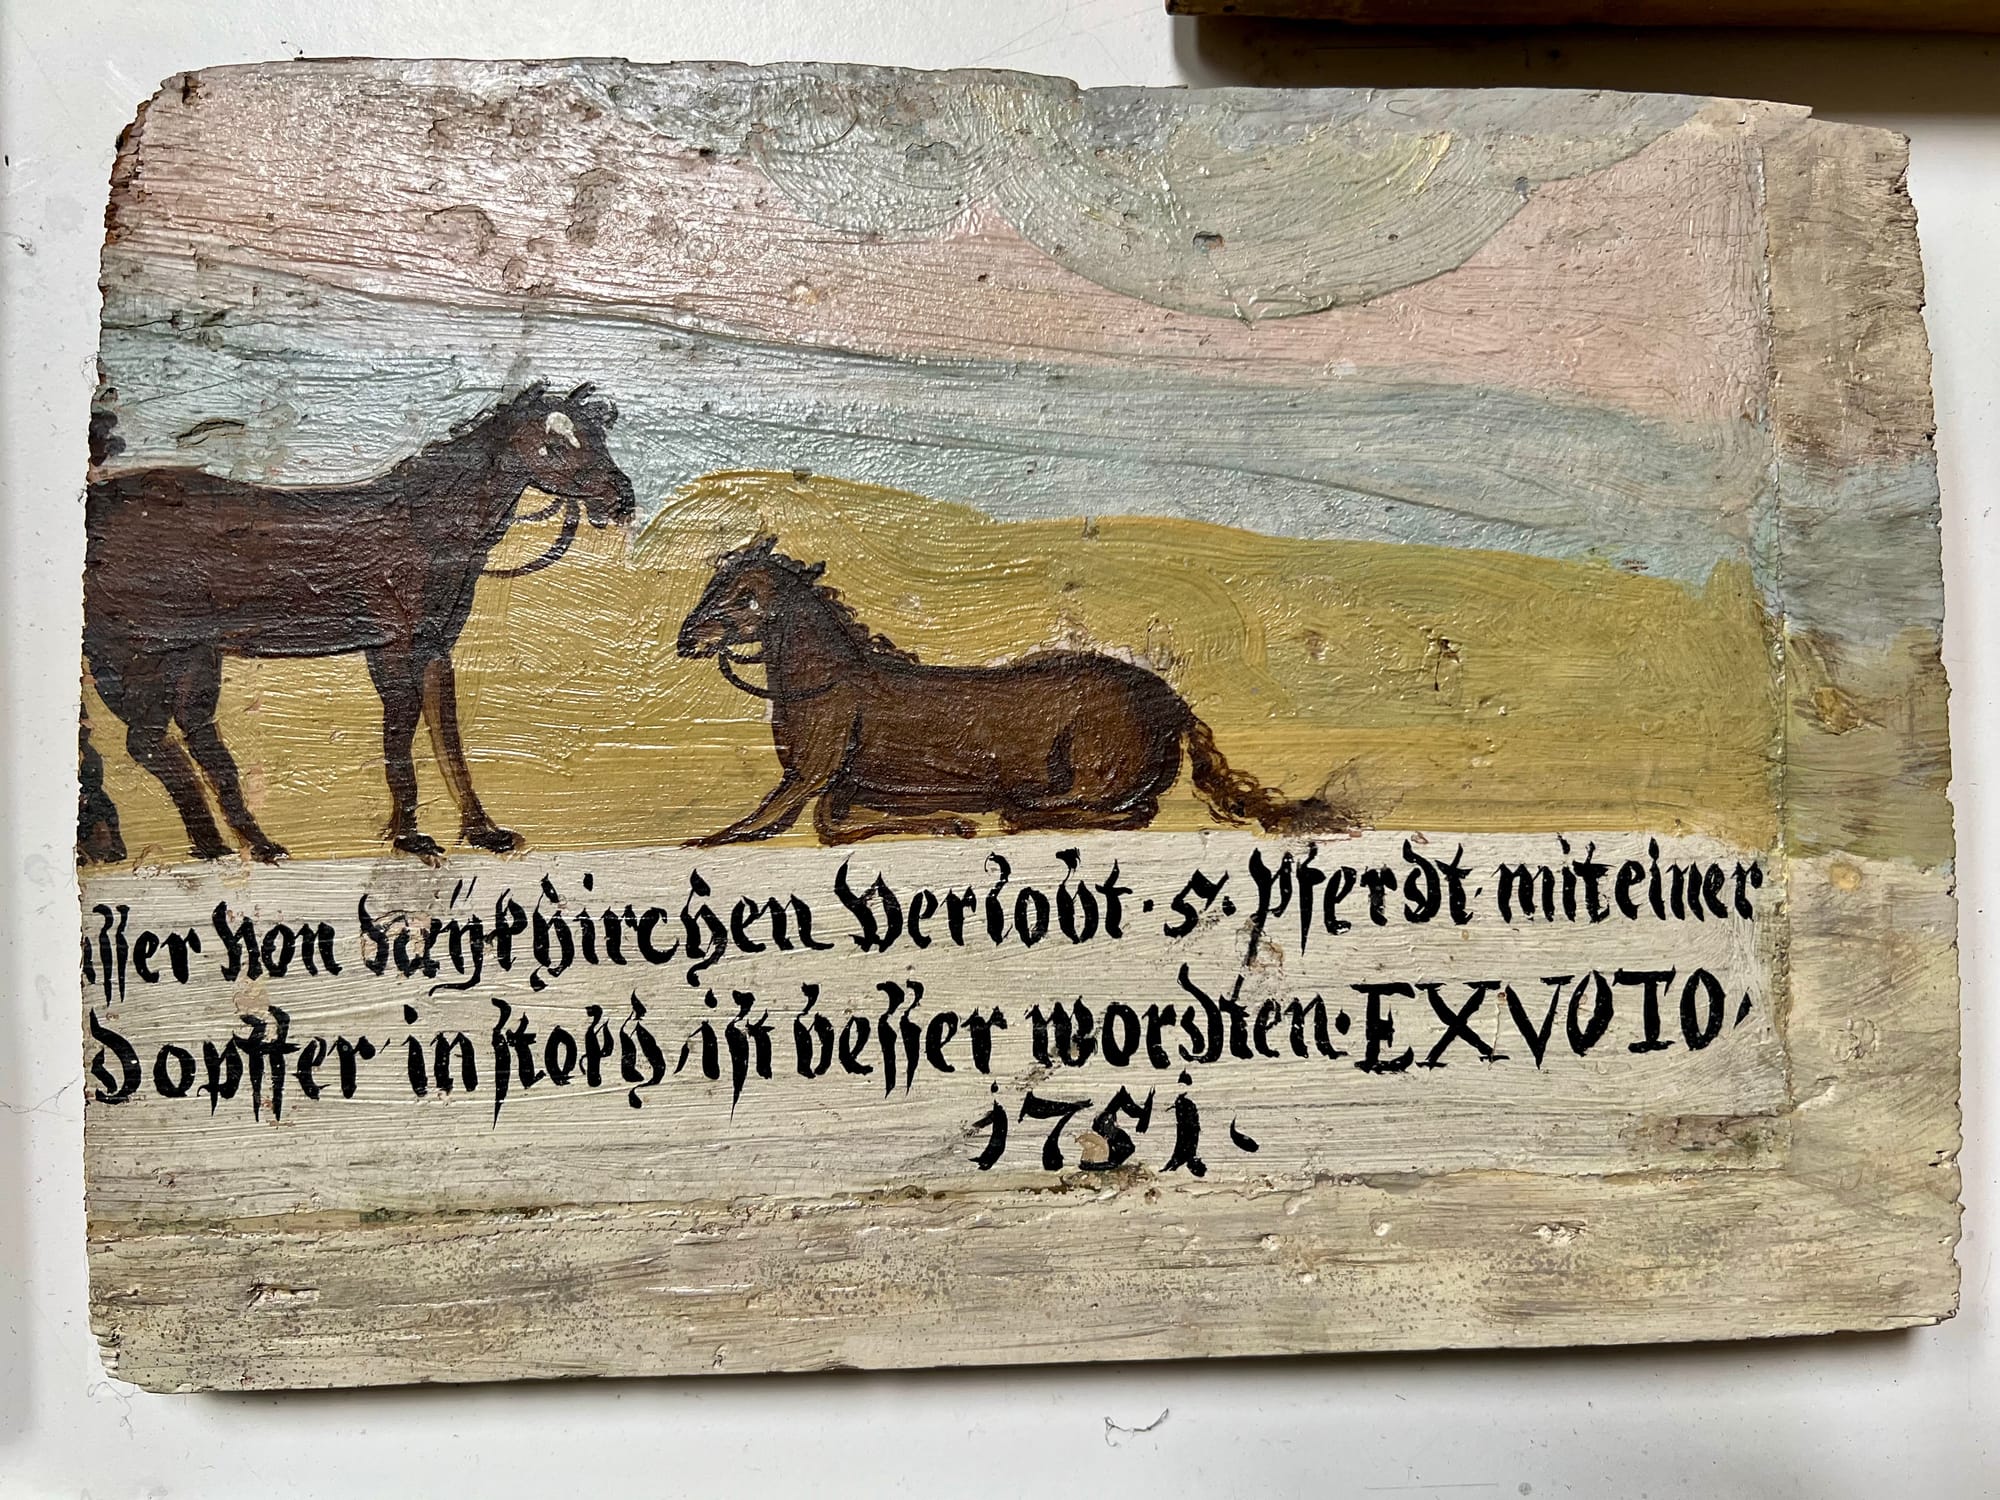 sser von Neÿkhirchen Verlobt · 5 · Pferdt · mit einer
Dopffer in stokh, ist besser wordten · EX VOTO,
1751.